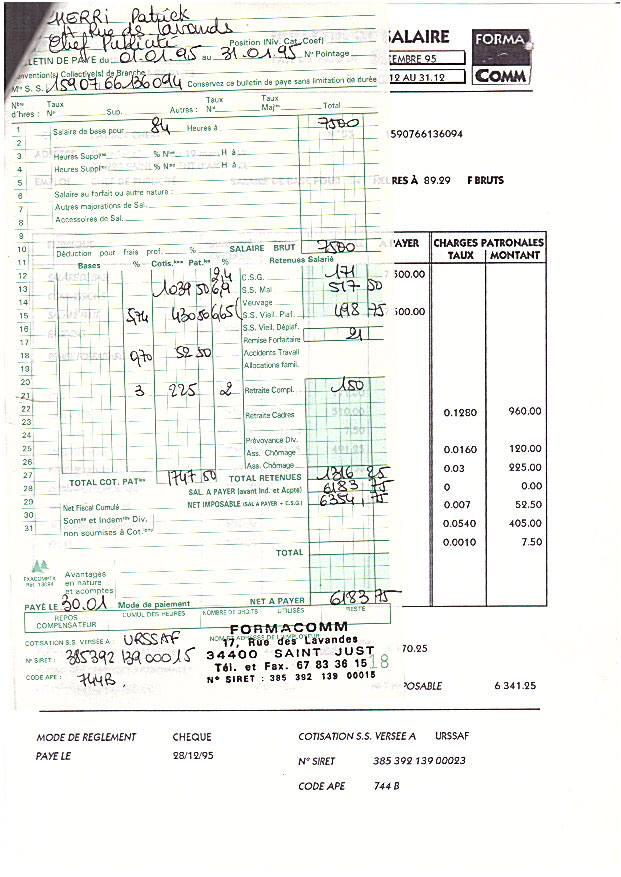 MERRI Patrick
Rue de Lavands
Chef Publicité
Position (Niv. Cat. Coef)
BULLETIN DE PAYE du 01.01.95 au 31.01.95 N° Pointage
Convention(s) Collective(s) de Branche
N° S.S. 1590766136094 Conservez ce bulletin de paye sans limitation de durée
Nbre d'hres : Taux N° Sup. Autres : Taux N° Taux Maj. Total
1 Salaire de base pour 84 Heures à 7500
2
3 Heures Supples % N° H à
4 Heures Suppl % N° H à
5 Salaire au forfait ou autre nature :
6
7 Autres majorations de Sal.
8 Accessoires de Sal.
9
10 Déduction pour frais prof. % SALAIRE BRUT 7500
11 Bases % Cotis. Pat. % Retenues Salarié
12 2,4 C.S.G. 171
13 1039 50 6,9 S.S. Mal 517 50
14 Veuvage
15 5,74 430 50 6,65 S.S. Vieil. Plaf. 498 75
16 S.S. Vieil. Déplaf.
17 Remise Forfaitaire 21
18 0,70 52 50 Accidents Travail
19 Allocations famil.
20
21 3 225 2 Retraite Compl. 150
22 Retraite Cadres
23
24 Prévoyance Div.
25 Ass. Chômage
26 Ass. Chômage
27 TOTAL COT. PAT 1747 50 TOTAL RETENUES 1316 25
28 SAL. A PAYER (avant Ind. et Acpte) 6183 75
29 Net Fiscal Cumulé NET IMPOSABLE (SAL A PAYER + C.S.G.) 6354 75
30 Som et Indem Div.
31 non soumises à Cot.
TOTAL
EXACOMPTA
Avantages en nature et acomptes
NET A PAYER 6183 75
PAYÉ LE 30.01 Mode de paiement
REPOS COMPENSATEUR CUMUL DES HEURES NOMBRE DE DROITS UTILISÉS RESTE
COTISATION S.S. VERSÉE A URSSAF
N° SIRET : 385392 139 00015
CODE APE : 744B
FORMACOMM
17, Rue des Lavandes
34400 SAINT JUST
Tél. et Fax. 67 83 36 15
N° SIRET : 385 392 139 00015
18
SALAIRE
FORMA
COMM
EMBRE 95
12 AU 31.12
1590766136094
RES À 89.29 F BRUTS
PAYER CHARGES PATRONALES
TAUX MONTANT
500.00
500.00
0.1280 960.00
0.0160 120.00
0.03 225.00
0 0.00
0.007 52.50
0.0540 405.00
0.0010 7.50
70.25
POSABLE 6 341.25
MODE DE REGLEMENT CHEQUE COTISATION S.S. VERSEE A URSSAF
PAYE LE 28/12/95 N° SIRET 385 392 139 00023
CODE APE 744 B